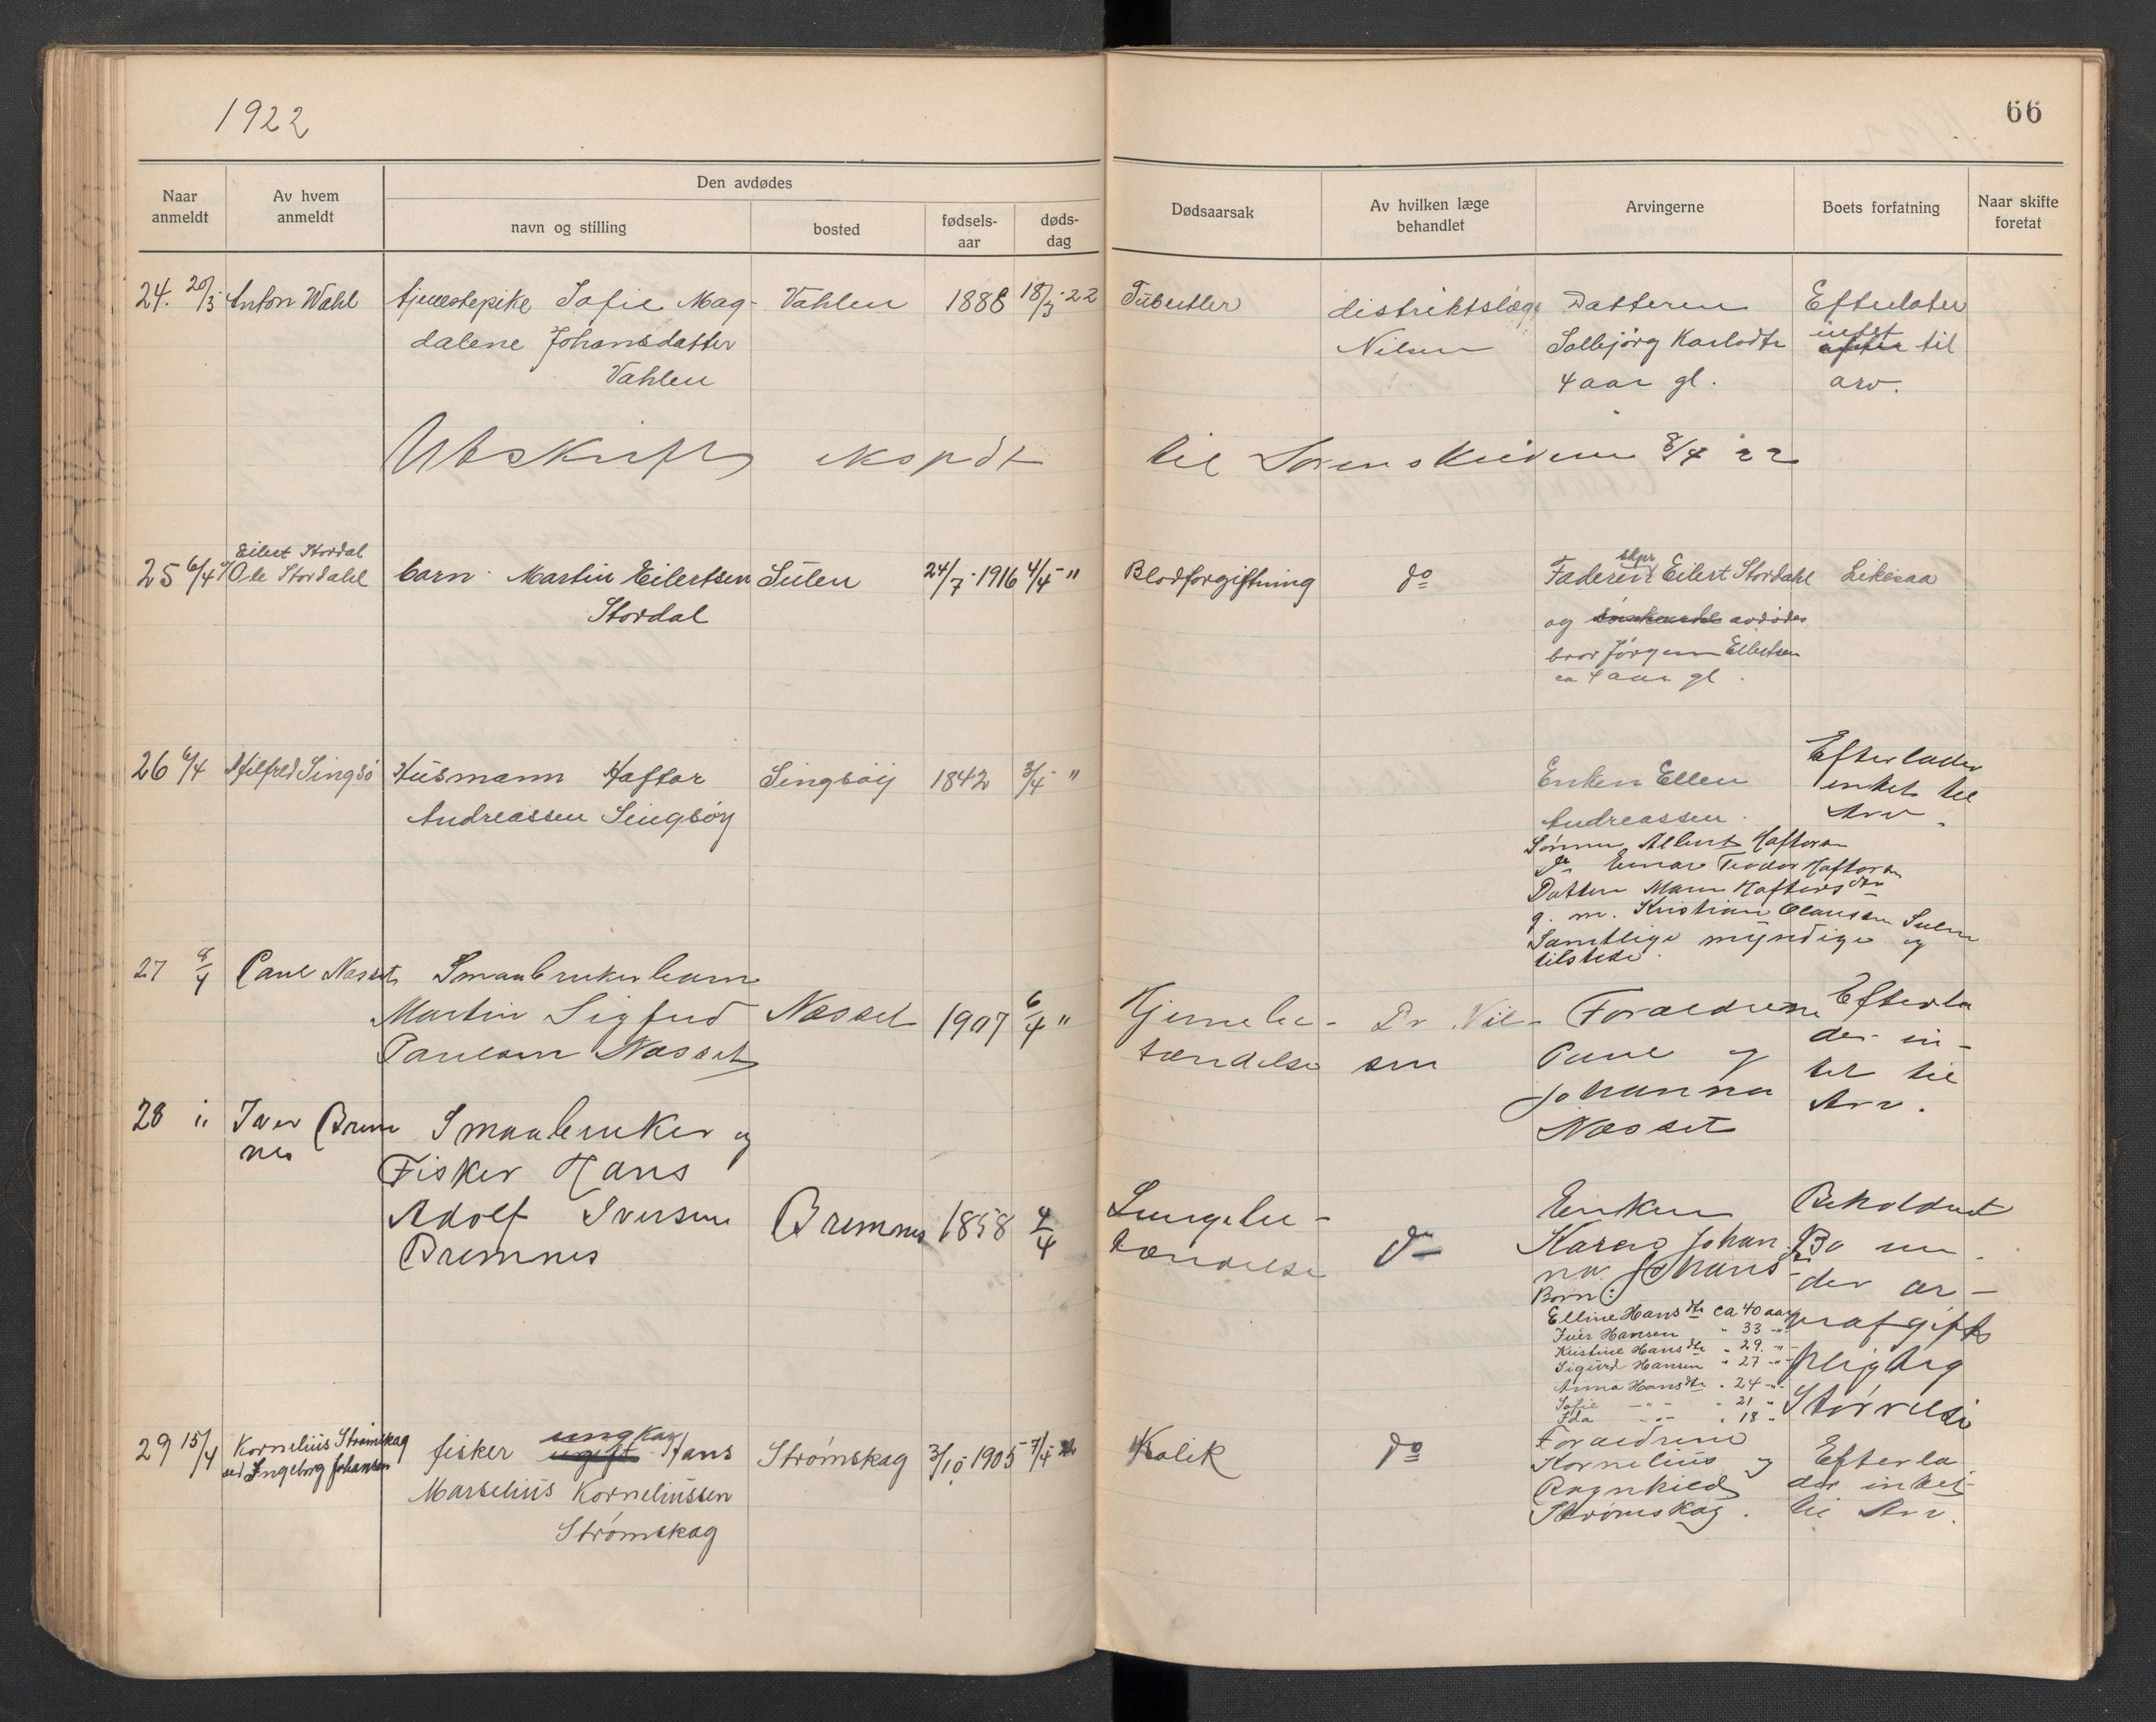 1922
66
Naar anmeldt
Av hvem anmeldt
Den avdødes
navn og stilling
bosted
fødselsaar
dødsdag
Dødsaarsak
Av hvilken læge behandlet
Arvingerne
Boets forfatning
Naar skifte foretat
24. 20/3 Anton Wahl tjenestepike Sofie Mag- Vahlen 1888 18/3 22 Tuberkler distriktslæge Datteren Efterlater
dalene Johansdatter Nilsen Solbjørg Karlsdtr intet til
Vahlen 4 aar gl. arv.
Utskrift ekspdt til Sorenskriveren 8/4 22
Eilert Stordal
25 6/4 Ole Stordahl barn Martin Eilertsen Sulen 24/7 1916 4/4 " Blodforgiftning do Faderen Eilert Stordahl Likesaa
Stordal og avdødes
bror Jørgen Eilertsen
ca 4 aar gl.
26 6/4 Hilfred Singsø Husmann Haftor Singsøy 1842 3/4 " Enken Ellen Efterlader
Andreassen Singsøy Andreassen. intet til
Arv.
Sønner Albert Haftorsn
do Einar Teodor Haftorsn
Datter Maren Haftorsdtr
g. m. Kristian Olausen Sulen
Samtlige myndige og
tilstede.
27 8/4 Paul Nesset Smaabrukerbarn
Martin Sigfred Nesset 1907 6/4 " Hjernebe- Dr Nil- Forældrene Efterla
Paulsen Nesset tændelse sen Paul og der in-
Johanna tet til
Nesset Arv.
28 " Iver Brem Smaabruker og
nes Fisker Hans
Adolf Iversen Bremnes 1858 4/4 Lungebe- do Enken Beholdent
Bremnes tændelse Karen Johan Bo un
na Johans- der ar-
Børn: veafgifts
Elline Hansdtr ca 40 aar pligtig
Iver Hansen " 33 " Størrelse
Kristine Hansdtr " 29 "
Sigurd Hansen " 27 "
Anna Hansdtr " 24 "
Sofie " " 21 "
Ida " " 18 "
29 15/4 Kornelius Strømskag fisker ungkar Hans Strømskag 3/10 1905 7/4 22 Kolik do Forældrene
ved Ingeborg Johansen Marselius Korneliussen Kornelius og Efterla
Strømskag Ragnhild der intet
Strømskag. til Arv.